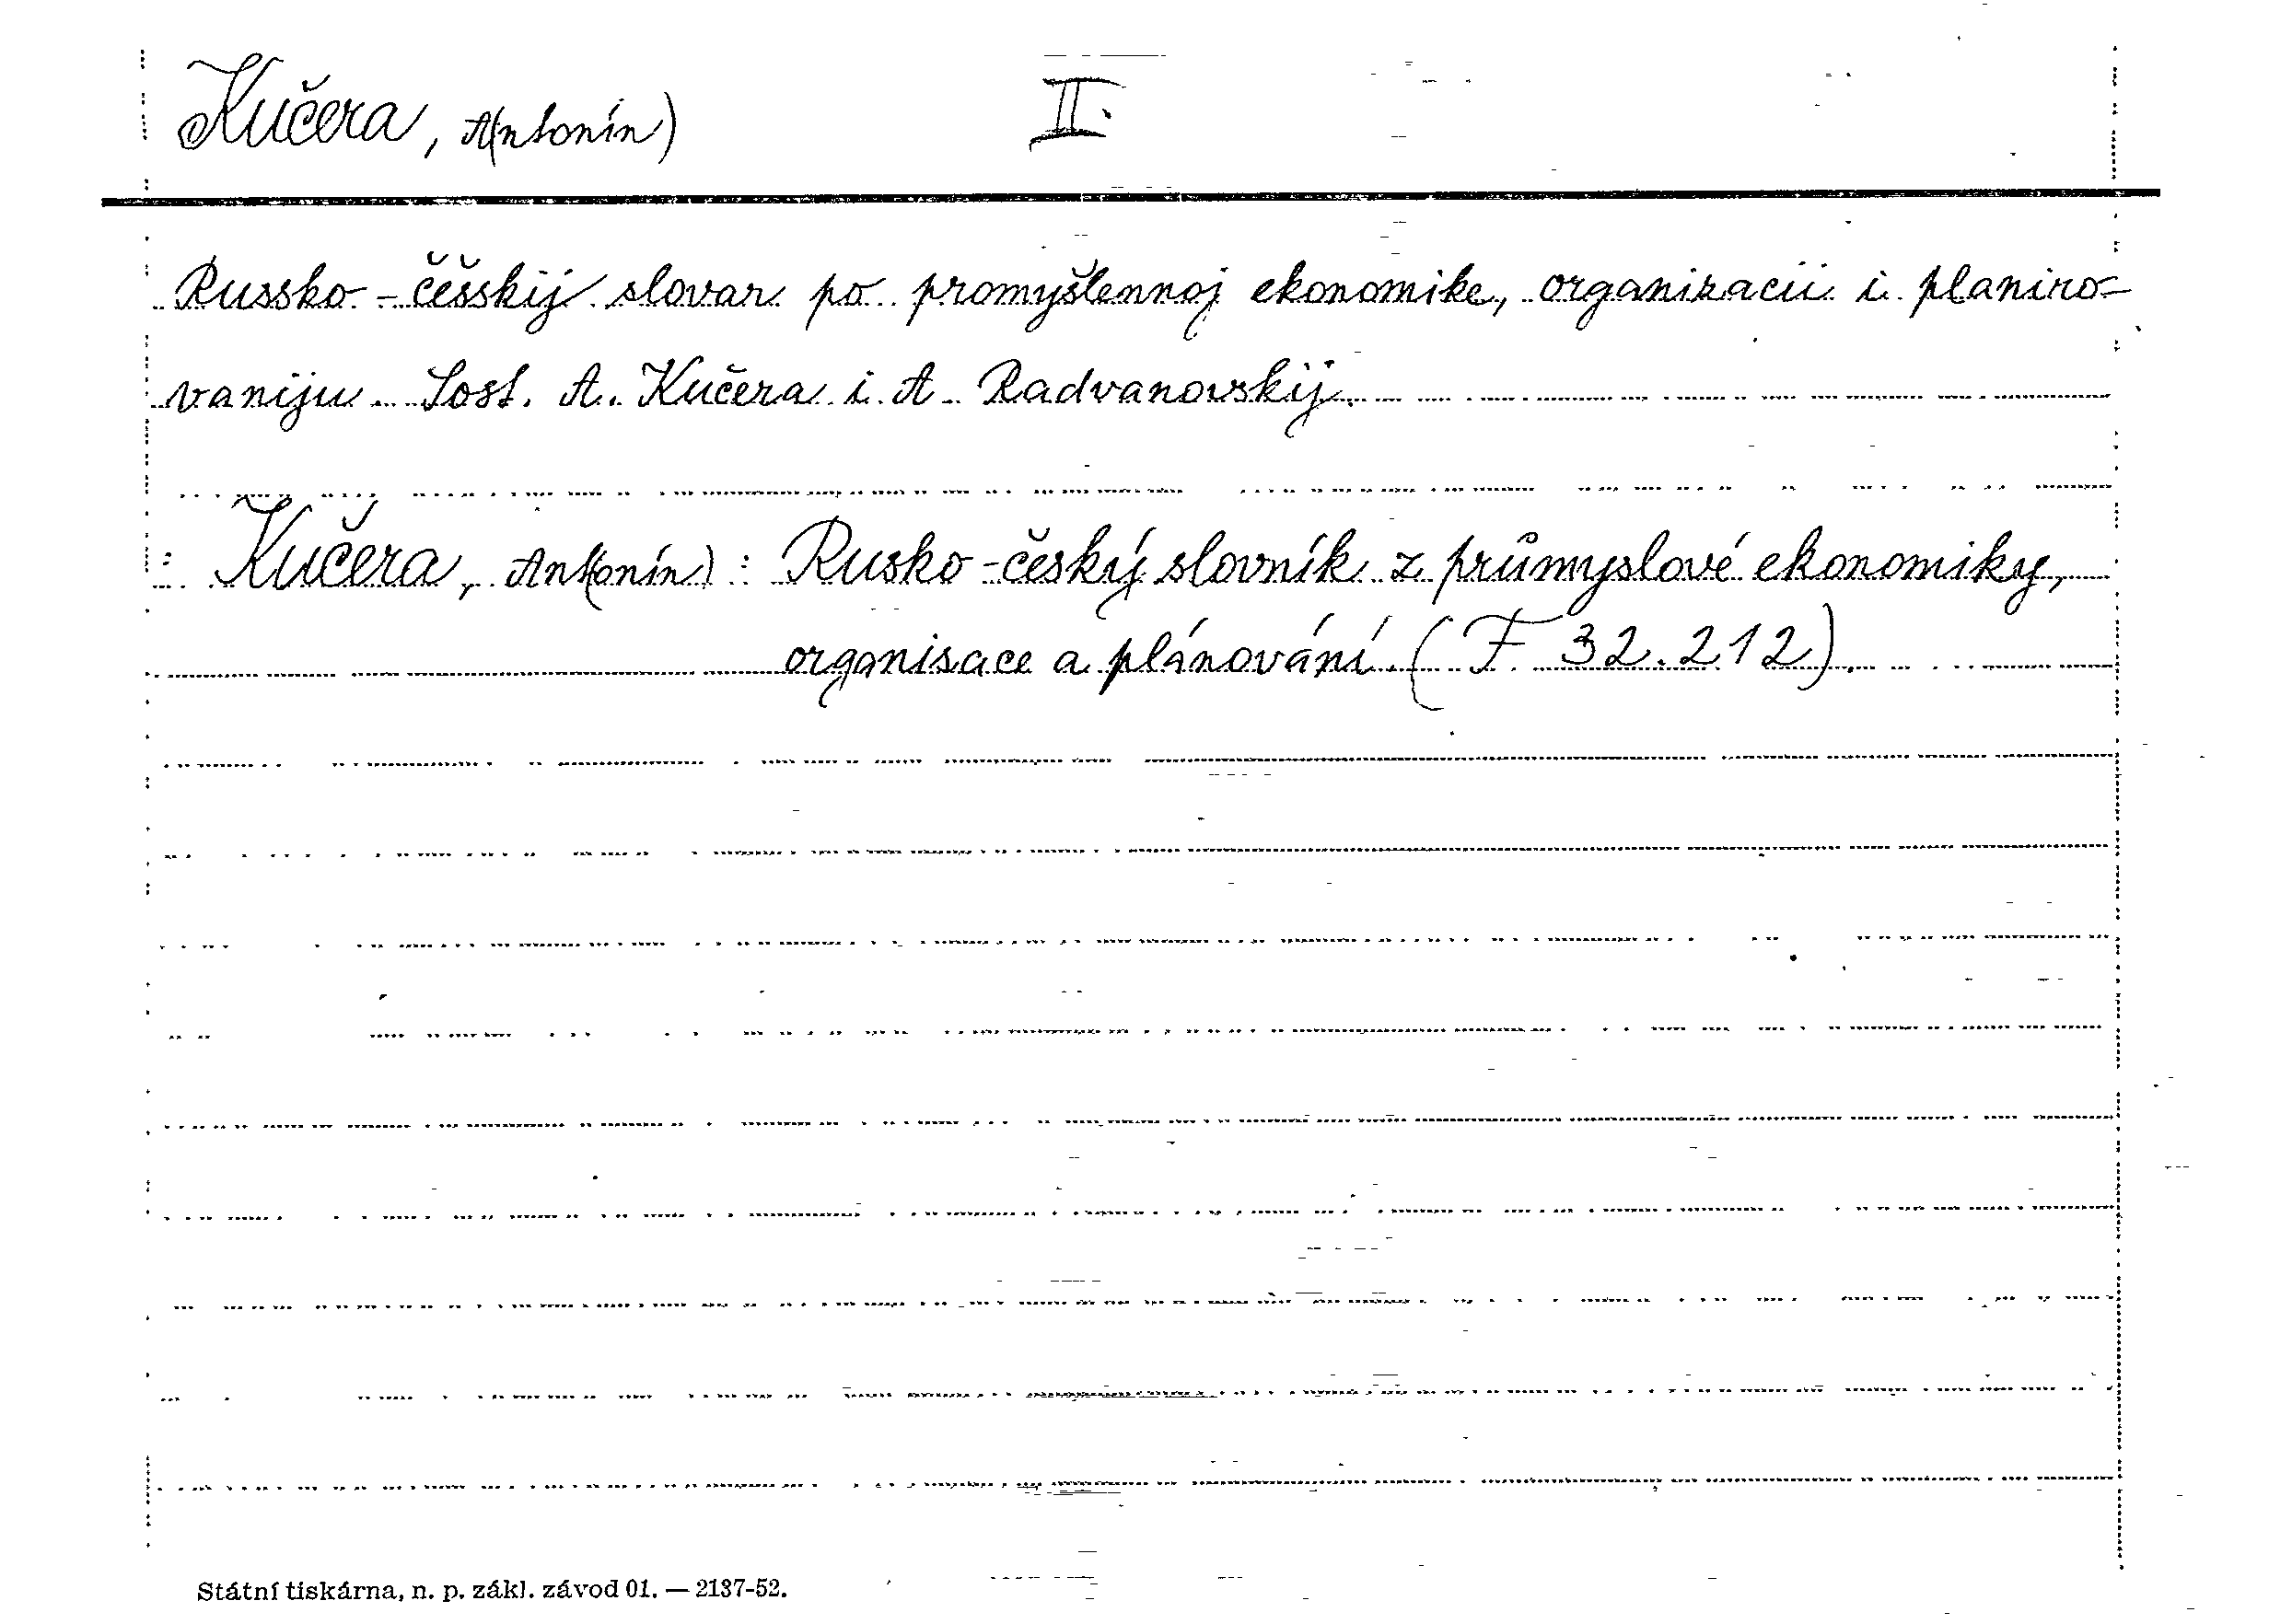 Kučera, A(ntonín) II.
Russko-češskij slovar po promyšlennoj ekonomike, organizacii i planiro-
vaniju. Sost. A. Kučera i A. Radvanovskij.
Kučera, Ant(onín): Rusko-český slovník z průmyslové ekonomiky,
organisace a plánování. (F 32.212).
Státní tiskárna, n. p. zákl. závod 01. — 2137-52.